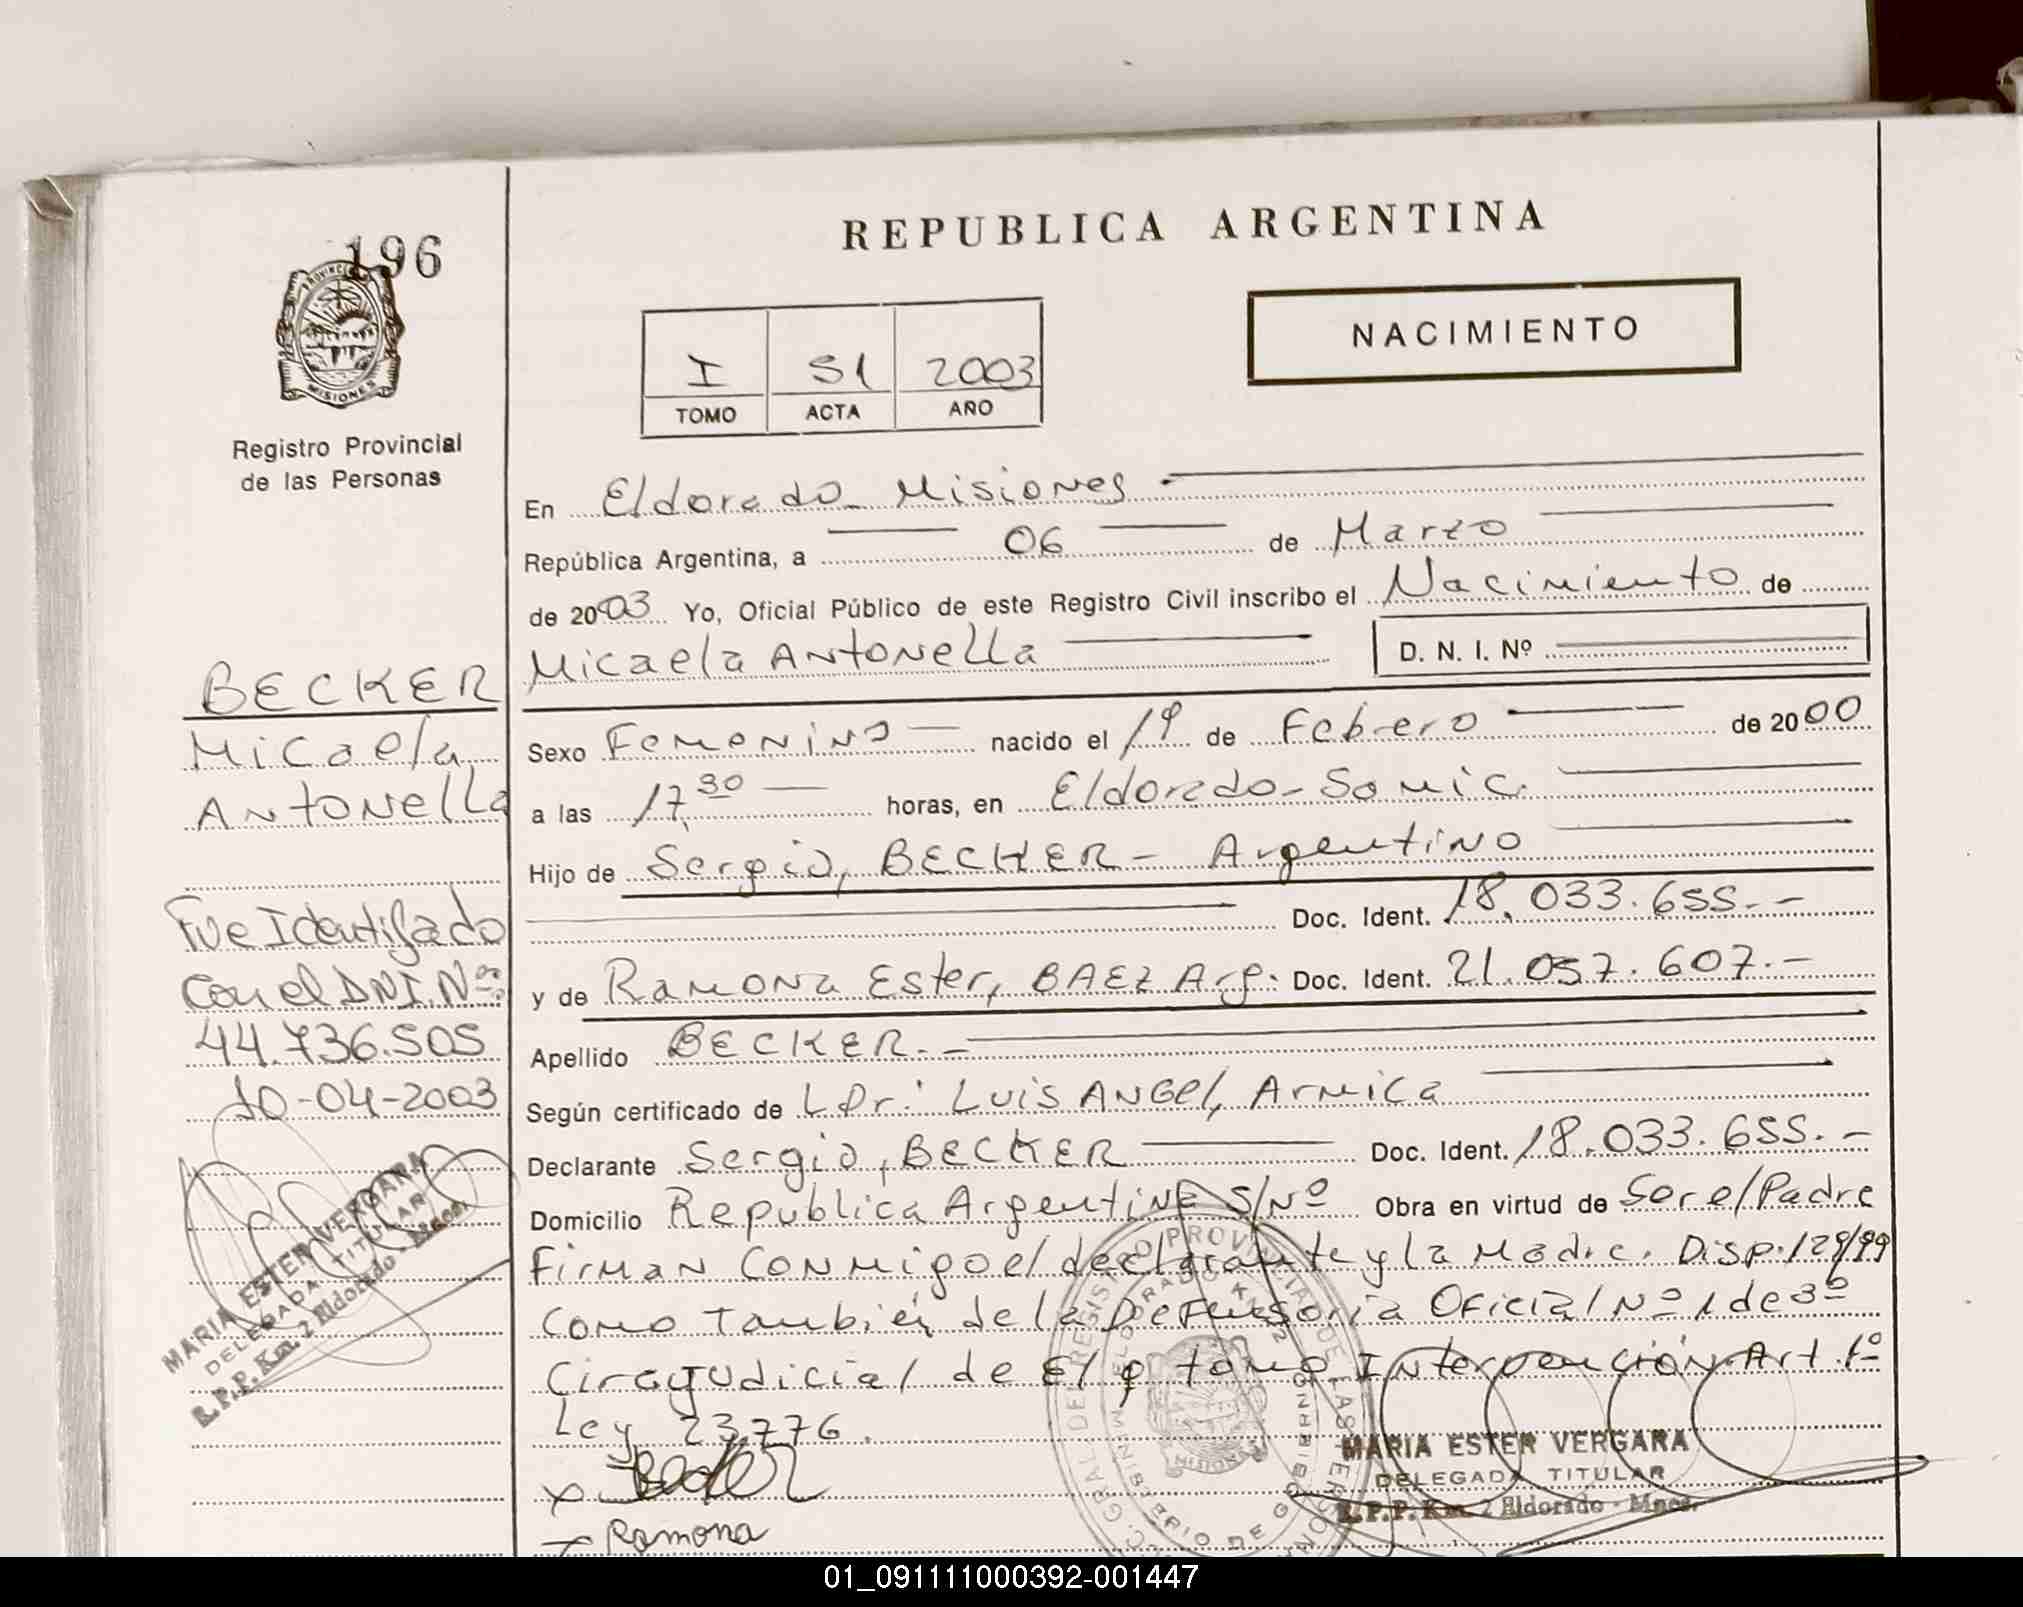 REPUBLICA ARGENTINA
196
PROVINCIA
MISIONES
Registro Provincial
de las Personas
I S1 2003
TOMO ACTA AÑO
NACIMIENTO
En Eldorado Misiones
República Argentina, a 06 de Marzo
de 2003 Yo, Oficial Público de este Registro Civil inscribo el Nacimiento de
Micaela Antonella D. N. I. Nº
BECKER
Micaela
Antonella
Sexo Femenino nacido el 1º de Febrero de 2000
a las 17,30 horas, en Eldorado - Samic.
Hijo de Sergio, BECKER - Argentino
Doc. Ident. 18.033.655.-
y de Ramona Ester, BAEZ Arg. Doc. Ident. 21.057.607.-
Apellido BECKER.-
Según certificado de LDr. Luis Angel, Arnica
Declarante Sergio, BECKER Doc. Ident. 18.033.655.-
Domicilio Republica Argentina S/Nº Obra en virtud de Ser el Padre
Firman conmigo el declarante y la Madre. Disp. 129/99
Como también de la Defensoría Oficial Nº 1 de 3º
Judicial de tomo Intervención Art. 1º
Ley 23776.
x Becker
x Ramona
Fue Identifado
Con el DNI. Nº
44.736.505
10-04-2003
MARIA ESTER VERGARA
DELEGADA TITULAR
R.P.P. Km. 2 Eldorado - Mnes.
MARIA ESTER VERGARA
DELEGADA TITULAR
R.P.P. Km. 2 Eldorado - Mnes.
01_091111000392-001447